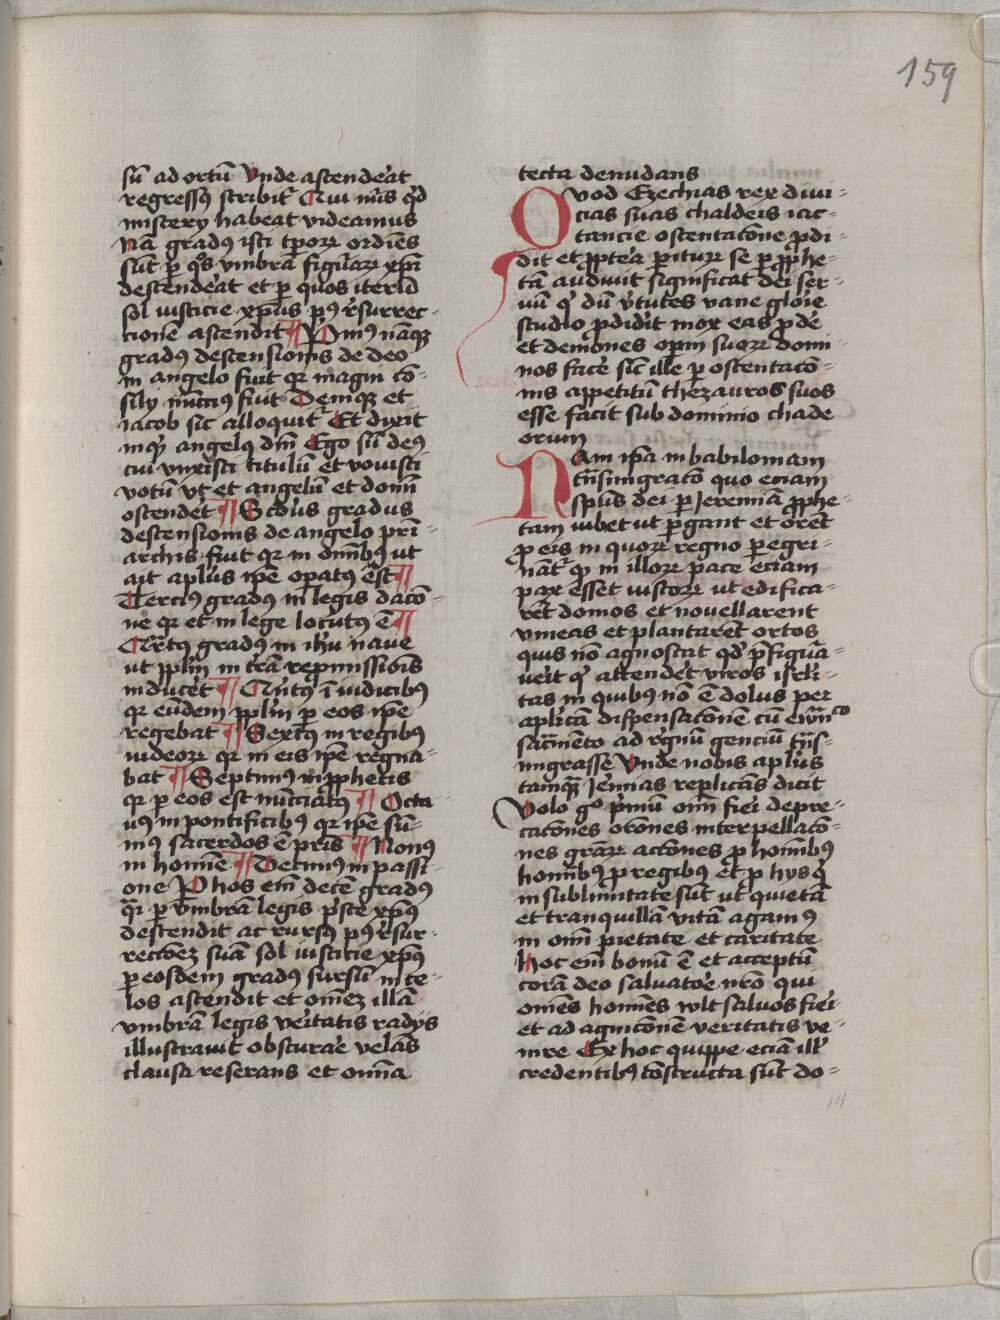 159
sū ad ortū Vnde ascendeat
regressꝰ scribit̄ Cui nūs qd
mistery habeat videamus
Nā gradꝰ isti tꝑoꝝ ordiēs
sūt ꝑ qͦs vmbrā figuraꝝ xp̄i
descendeat et ꝑ quos iterū
sol iusticie xpūs pꝰ rsurrec-
cionē ascendit ¶ Pimꝰ nāqꝫ
gradꝰ descensionis de deo
in angelo fuit qꝛ magni cō-
sily nūcciꝰ fuit Deniqꝫ et
iacob sic alloquit̄ Et dixit
inqͥ angelꝰ dn̄i Ego sū deꝰ
cui vnxisti titulū et vouisti
votū vt et angelū et dom̄
ostendet ¶ Scdus gradus
descensionis de angelo pri-
archis fuit qꝛ in om̄ibꝰ ut
ait apl̄us ip̄e opatꝰ est ¶
Terciꝰ gradꝰ in legis dacō-
ne qꝛ et in lege locutꝰ ē ¶
Qrtꝰ gradꝰ in ihū naue
ut ppl̄m in trā repmissiōis
induceret ¶ Quītꝰ ī iudicibꝰ
qꝛ eūdem ppl̄m ꝑ eos ip̄e
regebat ¶ Sextꝰ in regibꝰ
iudeoꝝ qꝛ in eis ip̄e regna-
bat ¶ Septimꝰ in ꝓphetis
qꝛ ꝑ eos est nūcciatꝰ ¶ Octa
uꝰ in pontificibꝰ qꝛ ip̄e sū-
mꝰ sacerdos ē pris ¶ Nonꝰ
in homīe ¶ Decimꝰ in passi-
one P hos em̄ decē gradꝰ
qͣi ꝑ vmbrā legis pste xpūs
descendit ac rursꝰ pꝰ rsur-
recōeꝫ suā sol iusticie xpūs
ꝑ eosdem gradꝰ sursū in ce-
los ascendit et om̄eꝫ illā
vmbrā legis veritatis radijs
illustrauit obscurāe velās
clausa reserans et om̄ia
tecta denudans
Quod Ezechias rex diui-
cias suas chaldeis iac-
tancie ostentacōne ꝓdi-
dit et ꝓptea ꝑituꝝ se ꝑ ꝓphe-
tā audiuit significat dei ser-
uū qͥ dū v̓tutes vane glorie
studio ꝓdidit mox eas ꝑde
et demones opm̄ suoꝝ domi-
nos facē sīc ille ꝑ ostentacō-
nis appetitū thezauros suos
esse facit sub dominio chade
orum
Nam ip̄a in babiloniam
trāsmigracō quo eciam
spūs dei ꝑ Jeremiā ꝓphe-
tam iubet ut ꝑgant et orēt
ꝓ eis in quoꝝ regno ꝑegri-
nāt̄ qͥ in illoꝝ pace eciam
pax esset iustoꝝ ut edifica-
rēt domos et nouellarent
vineas et plantarēt ortos
quis nō agnoscat qd̄ pfigūa-
uerit qͥ attendet viros isrl̄i-
tas in quibus nō ē dolus per
aplicā dispensacōnē cū ewāᶜᵒ
sacmēto ad regnū genciū trās-
migrasse Vnde nobis apl̄us
tamqꝫ Jemias replicās dicit
Volo gͦ pmū om̄i fieri depre-
cacōnes orōnes interpellacō-
nes grāꝝ actōnes ꝓ homībꝰ
homībꝰ ꝓ regibꝰ et ꝓ hys qͥ
in sublimitate sūt ut quietā
et tranquillā vitā agamꝰ
in om̄i pietate et caritate
Hoc em̄ bonū ē et acceptū
corā deo saluatoe nr̄o qui
om̄es homīes wlt saluos fieri
et ad agnicōnē veritatis ve-
nire Ex hoc quippe eciā ill̄
credentibꝰ cōstructa sūt do-